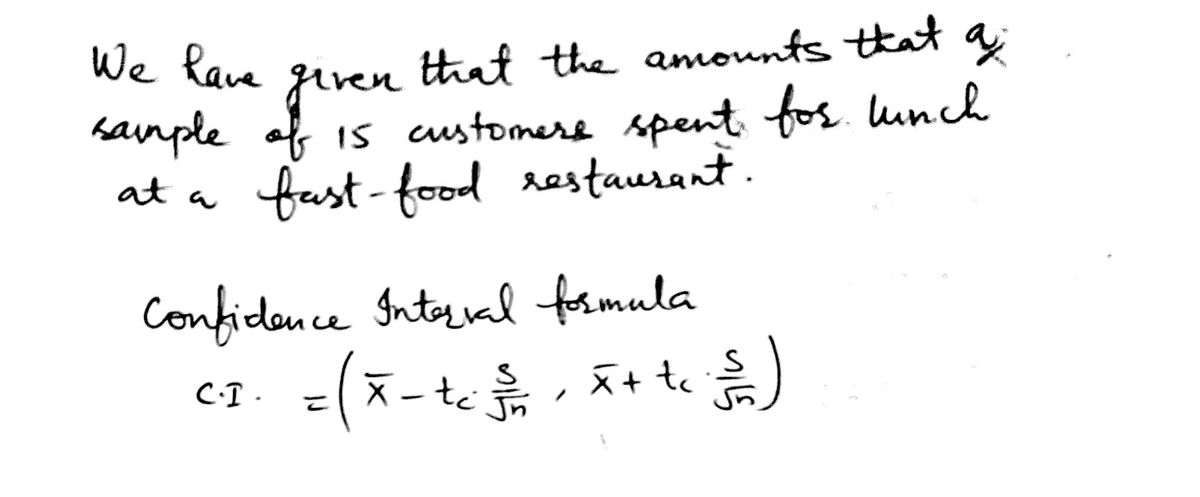 We have given that the amounts that a
sample of 15 customers spent for lunch
at a fast-food restaurant.
Confidence Interval formula
C.I. = ( x̄ - tc · S/√n , x̄ + tc · S/√n )